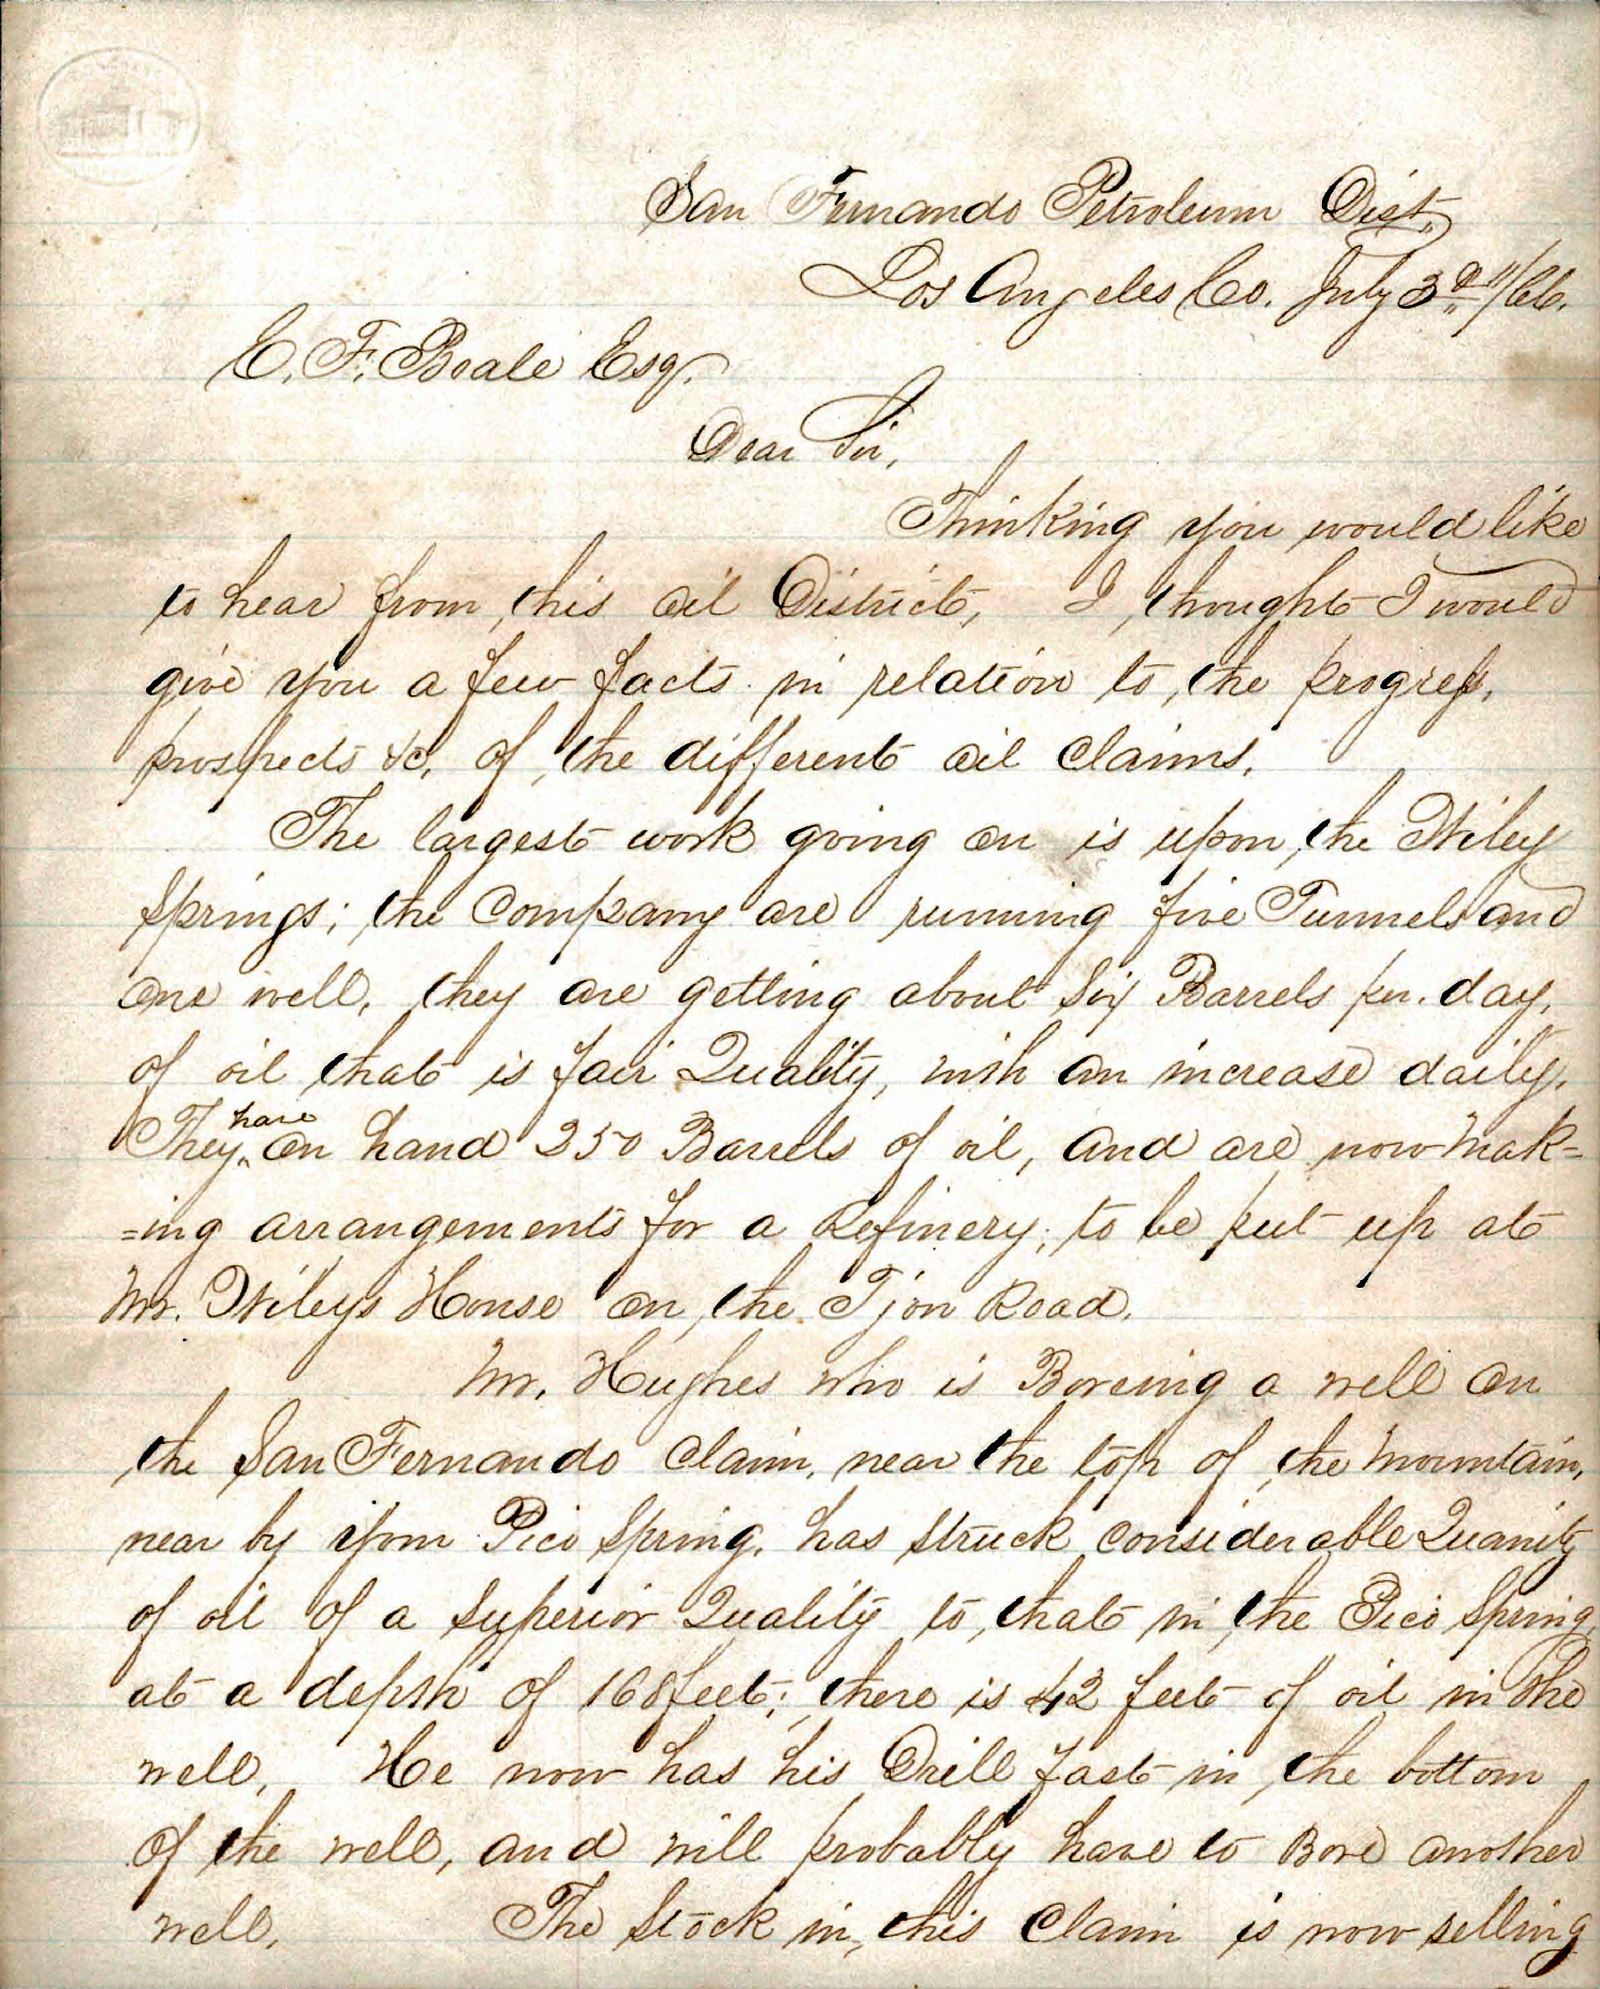 San Fernando Petroleum Dist.
Los Angeles Co. July 3d "/66.
E. F. Beale Esq.
Dear Sir,
Thinking you would like
to hear from this oil District, I thought I would
give you a few facts in relation to the progress,
prospects &c. of the different oil claims.
The largest work going on is upon the Wiley
Springs; the Company are running five Tunnels and
one well, they are getting about Six Barrels per. day,
of oil that is fair Quality, with an increase daily.
They have on hand 250 Barrels of oil, and are now mak=
=ing arrangements for a Refinery; to be put up at
Mr. Wileys House on the Tjon Road.
Mr. Hughes who is Boreing a well on
the San Fernando Claim, near the top of the Mountain,
near by your Pico Spring, has struck considerable Quanity
of oil of a Superior Quality to that in the Pico Spring,
at a depth of 160 feet; there is 42 feet of oil in the
well, He now has his Drill fast in the bottom
of the well, and will probably have to Bore another
well, The Stock in this Claim is now selling